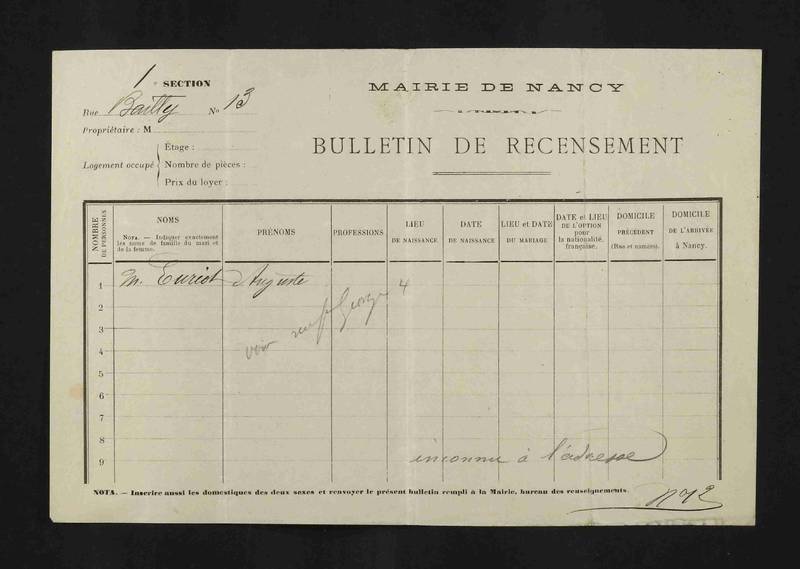 1e SECTION
Rue Bailly No 13
Propriétaire : M
Étage :
Logement occupé
Nombre de pièces :
Prix du loyer :
MAIRIE DE NANCY
BULLETIN DE RECENSEMENT
NOMBRE DE PERSONNES
NOMS
NOTA. — Indiquer exactement
les noms de famille du mari et
de la femme.
PRÉNOMS
PROFESSIONS
LIEU
DE NAISSANCE
DATE
DE NAISSANCE
LIEU et DATE
DU MARIAGE
DATE et LIEU
DE L'OPTION
pour
la nationalité
française.
DOMICILE
PRÉCÉDENT
(Rue et numéro).
DOMICILE
DE L'ARRIVÉE
à Nancy.
1 M. Turiot Auguste
2
voir rue St Georges 4
3
4
5
6
7
8
inconnu à l'adresse
9
NOTA. — Inscrire aussi les domestiques des deux sexes et renvoyer le présent bulletin rempli à la Mairie, bureau des renseignements.